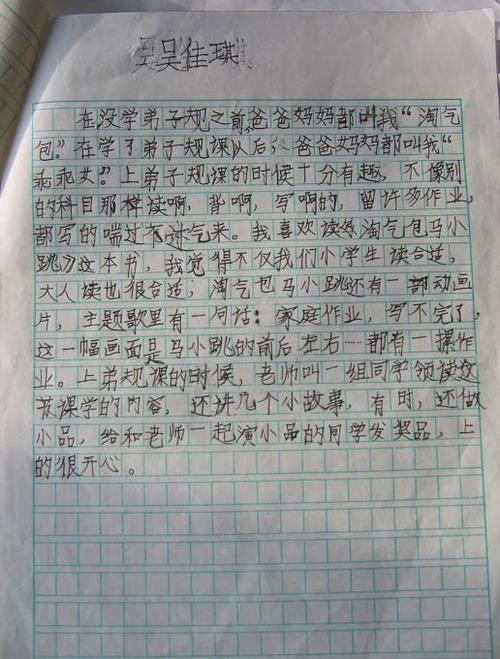 吴佳琪
在没学弟子规之前,爸爸妈妈都叫我“淘气
包。”在学了弟子规课以后,爸爸妈妈都叫我“
乖乖女。”上弟子规课的时候十分有趣,不像别
的科目那样读啊,背啊,写啊的,留许多作业,
都写的喘过不过气来。我喜欢读淘气包马小
跳》这本书,我觉得不仅我们小学生读合适,
大人读也很合适;淘气包马小跳还有一部动画
片,主题歌里有一句话:家庭作业,写不完了,
这一幅画面是马小跳的前后左右……都有一摞作
业。上弟规课的时候,老师叫一组同学领读这
节课学的内容,还讲几个小故事,有时,还做
小品,给和老师一起演小品的同学发奖品,上
的很开心。